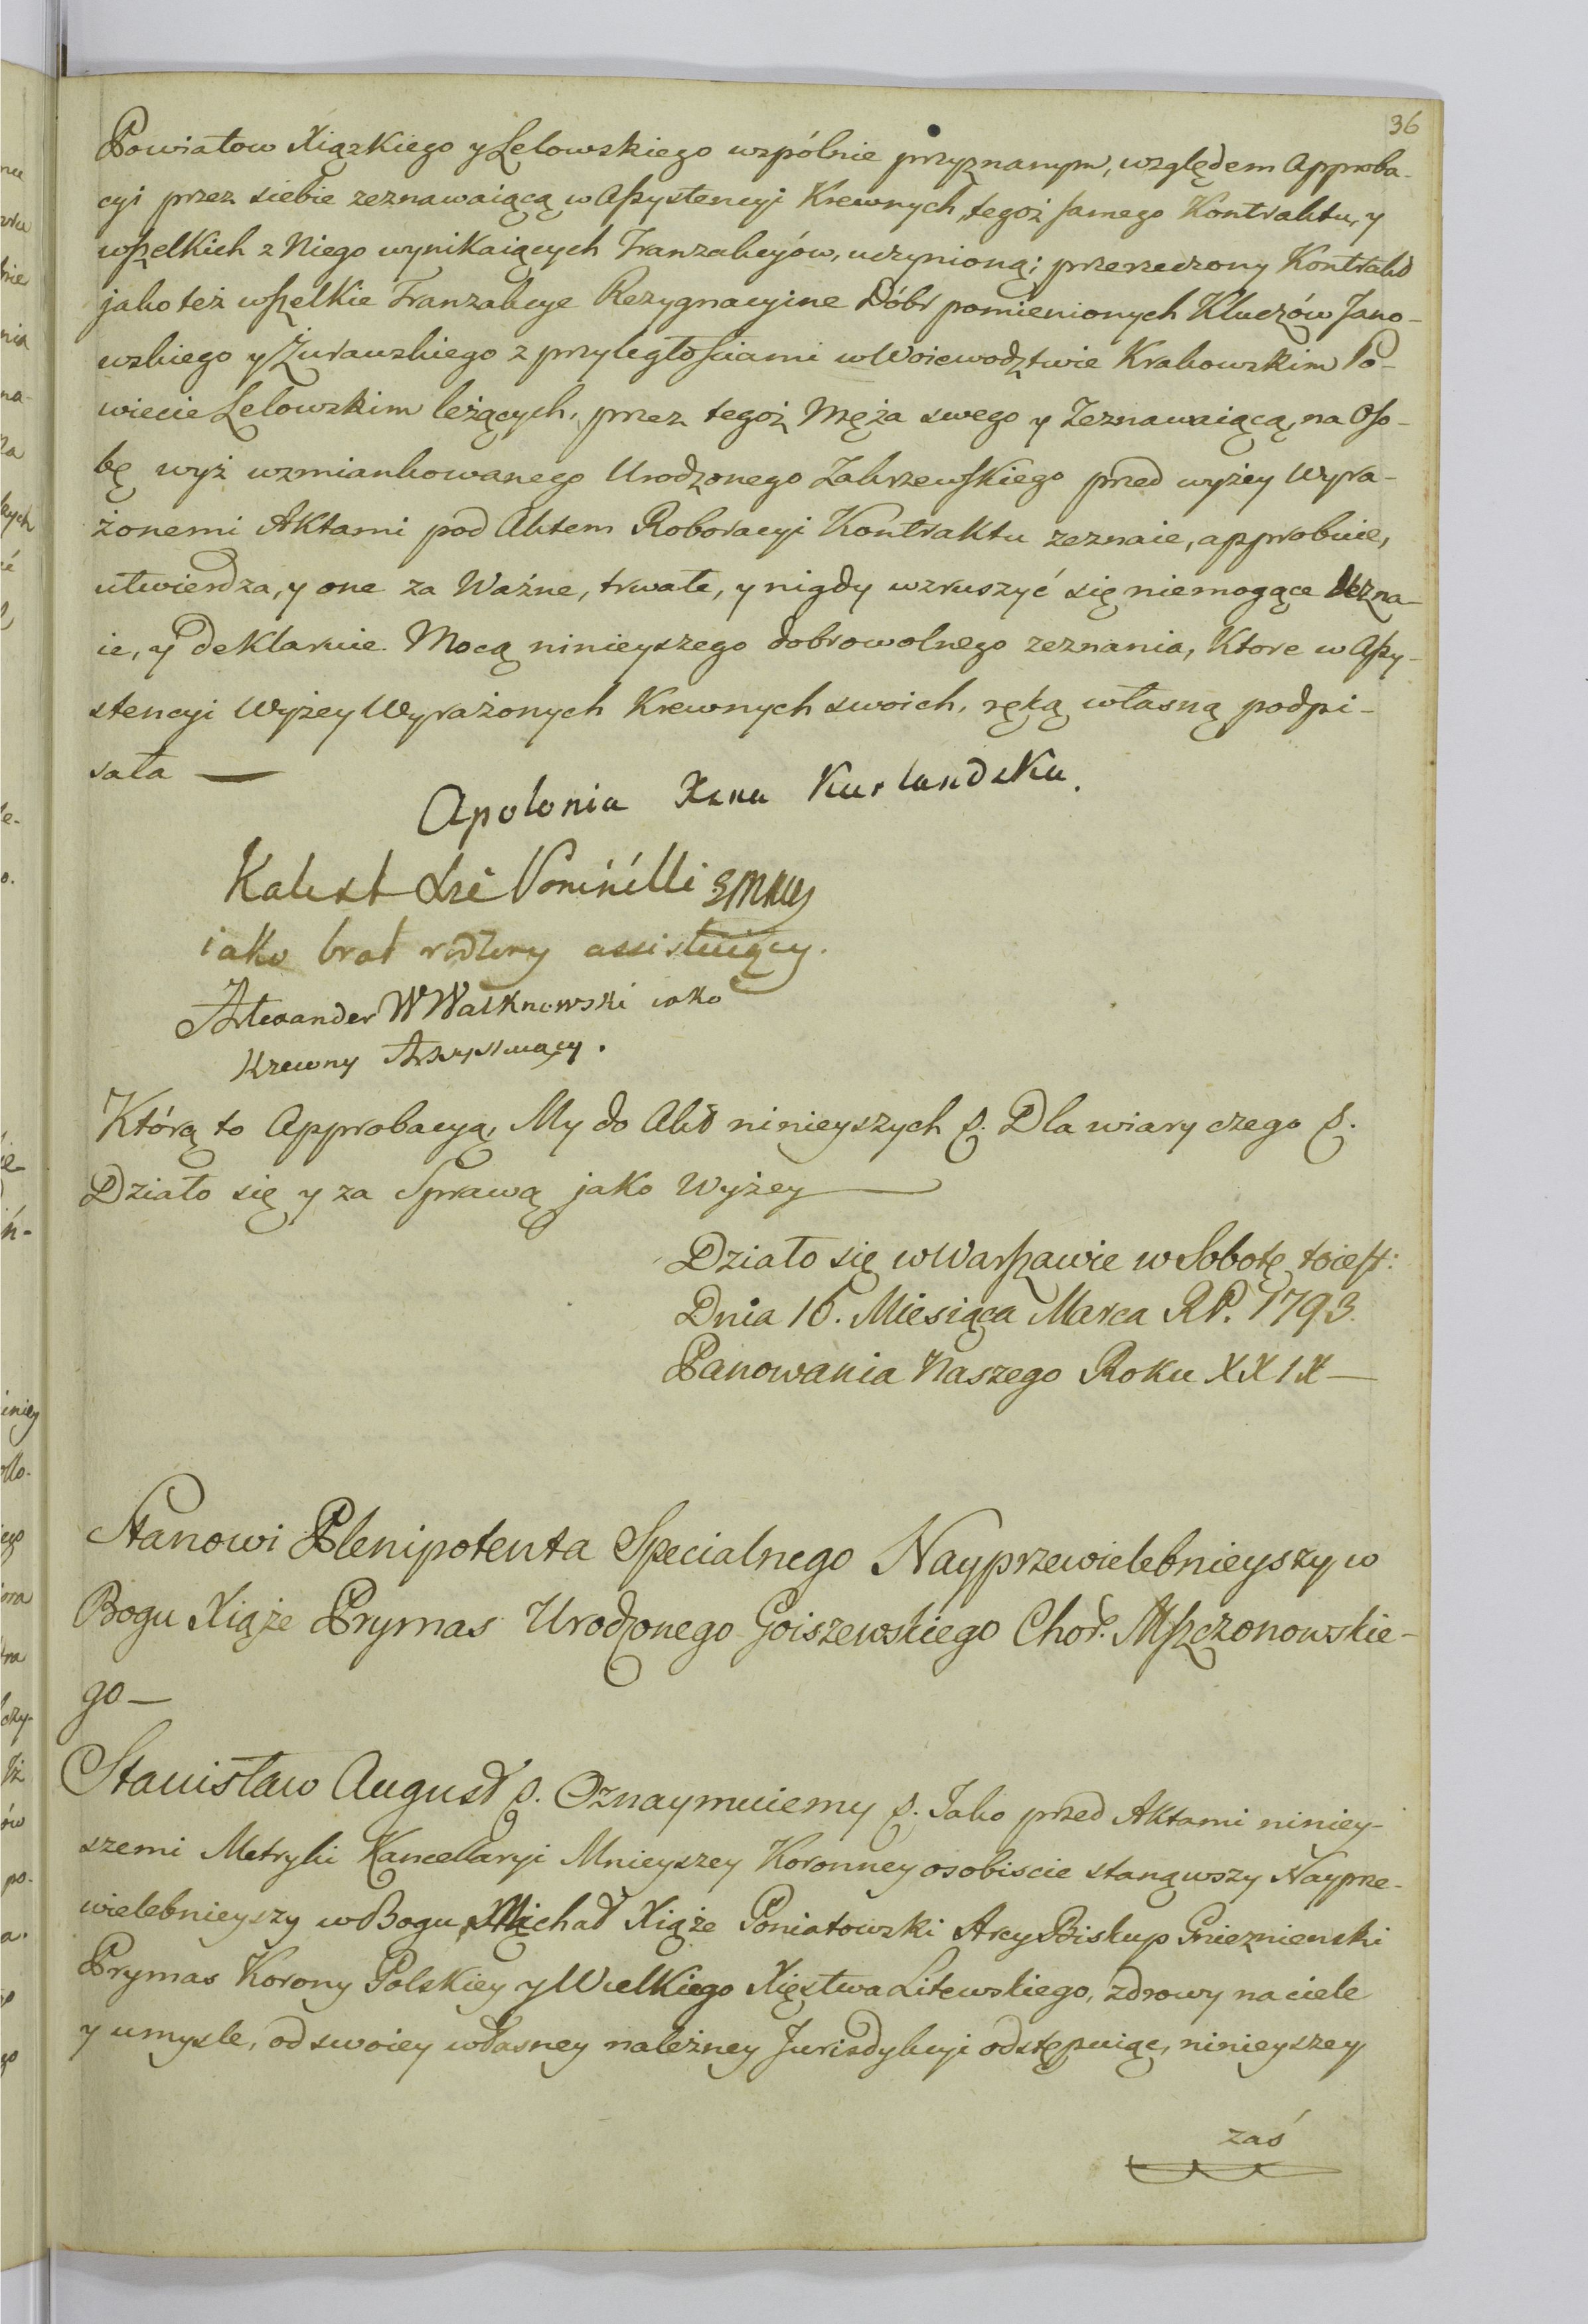 36
Powiatow Xiązkiego y Lelowskiego wspólnie przyznanym, względem Approba-
cyi przez siebie zeznawaiącą w Aſsystencyi Krewnych, tegoż samego Kontraktu, y
wſzelkich z Niego wynikaiących Tranzakcyów, uczynioną; przerzeczony Kontrakt
jako też wſzelkie Tranzakcye Rezygnacyine Dóbr pomienionych Kluczów Jano-
wskiego y Żurawskiego z przyległościami w Woiewodztwie Krakowskim Po-
wiecie Lelowskim leżących, przez tegoż Męża swego y Zeznawaiącą, na Oso-
bę wyż wzmiankowanego Urodzonego Zakrzewskiego przed wyżey wyra-
żonemi Aktami pod Aktem Roboracyi Kontraktu zeznaie, approbuie,
utwierdza, y one za Ważne, trwałe, y nigdy wzruszyć się niemogące uzna-
ie, y deklaruie. Mocą ninieyszego dobrowolnego zeznania, Ktore w Aſsy-
stencyi Wyżey Wyrażonych Krewnych swoich, ręką własną podpi-
sała —
Apolonia Xzna Kurlandzka.
Kalixt Xże Poniński
iako brat rodzony assistuiący.
Alexander W Walknowski iako
Krewny Assystuiący.
Którą to Approbacyą, My do Akt ninieyszych &. Dla wiary czego &.
Działo się y za Sprawą jako Wyżey —
Działo się w Warſzawie w Sobotę toiest:
Dnia 16. Miesiąca Marca RP. 1793.
Panowania Naszego Roku XXIX —
Stanowi Plenipotenta Specialnego Nayprzewielebnieyszy w
Bogu Xiąże Prymas Urodzonego Goiszewskiego Chor. Mſzczonowskie-
go —
Stanisław August &. Oznaymuiemy &. Jako przed Aktami niniey-
szemi Metryki Kancellaryi Mnieyszey Koronney osobiscie stanąwszy Nayprze-
wielebnieyszy w Bogu Michał Xiąże Poniatowski Arcy Biskup Gnieznienski
Prymas Korony Polskiey y Wielkiego Xięstwa Litewskiego, zdrowy na ciele
y umysle, od swoiey własney należney Jurisdykcyi odstępuiąc, ninieyszey
zaś